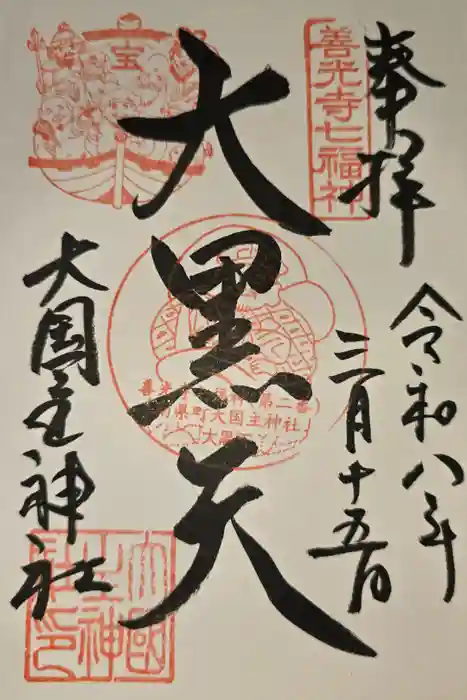 奉拝
善光寺七福神
令和八年
三月十五日
大黒天
宝
第二番
南県町大国主神社
大国主神社
大國
主神
社印